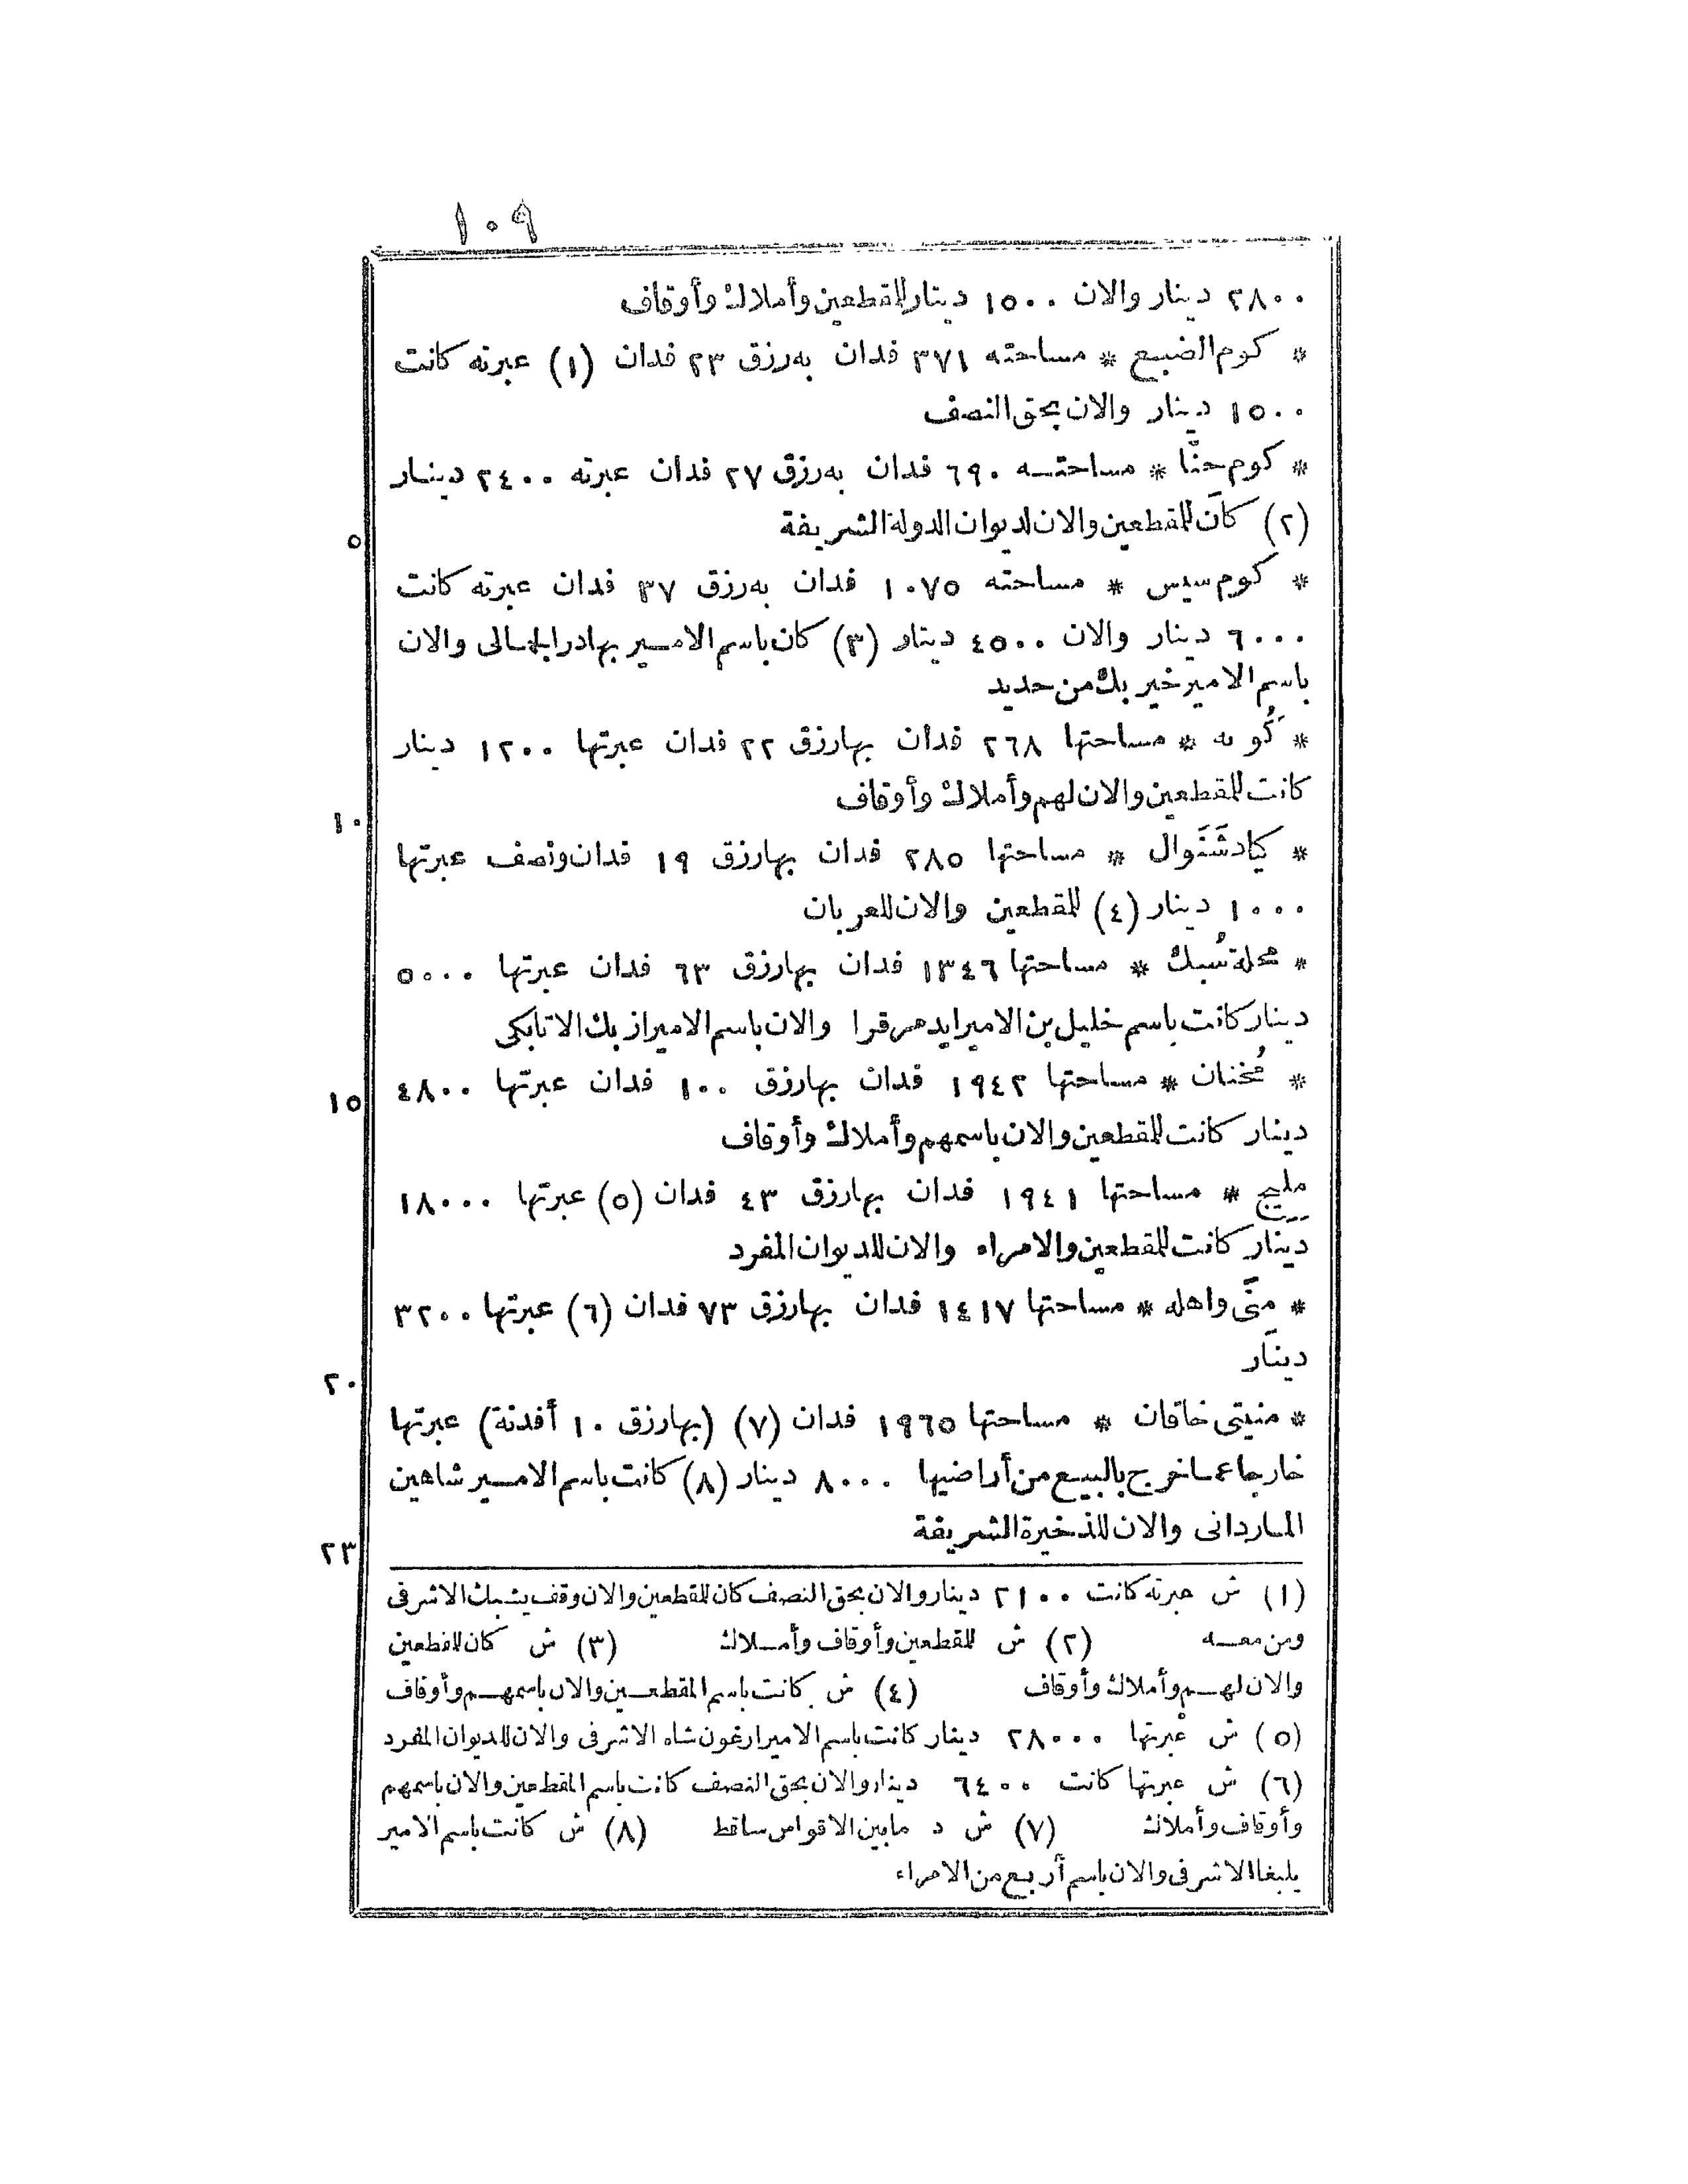 ١٠٩
٢٨٠٠ دينار والان ١٥٠٠ دينار للقطعين وأملاك وأوقاف
* كوم الضبيع * مساحته ٣٧١ فدان به رزق ٢٣ فدان (١) عبرته كانت
١٥٠٠ دينار والان بحق النصف
* كوم حنّا * مساحته ٦٩٠ فدان به رزق ٢٧ فدان عبرته ٢٤٠٠ دينار
(٢) كان للقطعين والان لديوان الدولة الشريفة
٥
* كوم سيس * مساحته ١٠٧٥ فدان به رزق ٣٧ فدان عبرته كانت
٦٠٠٠ دينار والان ٤٥٠٠ دينار (٣) كان باسم الامير بهادر الجمالى والان
باسم الامير خير بك من حديد
* مساحتها ٢٦٨ فدان بها رزق ٢٢ فدان عبرتها ١٢٠٠ دينار
كانت للقطعين والان لهم وأملاك وأوقاف
١٠
* كيادشَنَوال * مساحتها ٢٨٥ فدان بها رزق ١٩ فدان ونصف عبرتها
١٠٠٠ دينار (٤) للقطعين والان للعربان
* محلة سُبك * مساحتها ١٣٤٦ فدان بها رزق ٦٣ فدان عبرتها ٥٠٠٠
دينار كانت باسم خليل بن الامير ايدمر قرا والان باسم الامير ازبك الاتابكى
* مُخنان * مساحتها ١٩٤٢ فدان بها رزق ١٠٠ فدان عبرتها ٤٨٠٠
١٥
دينار كانت للقطعين والان باسمهم وأملاك وأوقاف
مليج * مساحتها ١٩٤١ فدان بها رزق ٤٣ فدان (٥) عبرتها ١٨٠٠٠
دينار كانت للقطعين والامراء والان للديوان المفرد
* منَى واهله * مساحتها ١٤١٧ فدان بها رزق ٧٣ فدان (٦) عبرتها ٣٢٠٠
دينار
٢٠
* منيتى خاقان * مساحتها ١٩٦٥ فدان (٧) (بها رزق ١٠ أفدنة) عبرتها
خارجا عما خرج بالبيع من أراضيها ٨٠٠٠ دينار (٨) كانت باسم الامير شاهين
الماردانى والان للذخيرة الشريفة
٢٣
(١) ش عبرته كانت ٢١٠٠ دينار والان بحق النصف كان للقطعين والان وقف يشبك الاشرفى
ومن معه (٢) ش للقطعين وأوقاف وأملاك (٣) ش كان للقطعين
والان لهم وأملاك وأوقاف (٤) ش كانت باسم المقطعين والان باسمهم وأوقاف
(٥) ش عبرتها ٢٨٠٠٠ دينار كانت باسم الامير ارغون شاه الاشرفى والان للديوان المفرد
(٦) ش عبرتها كانت ٦٤٠٠ دينار والان بحق النصف كانت باسم المقطعين والان باسمهم
وأوقاف وأملاك (٧) ش د ما بين الاقواس ساقط (٨) ش كانت باسم الامير
يلبغا الاشرفى والان باسم أربع من الامراء